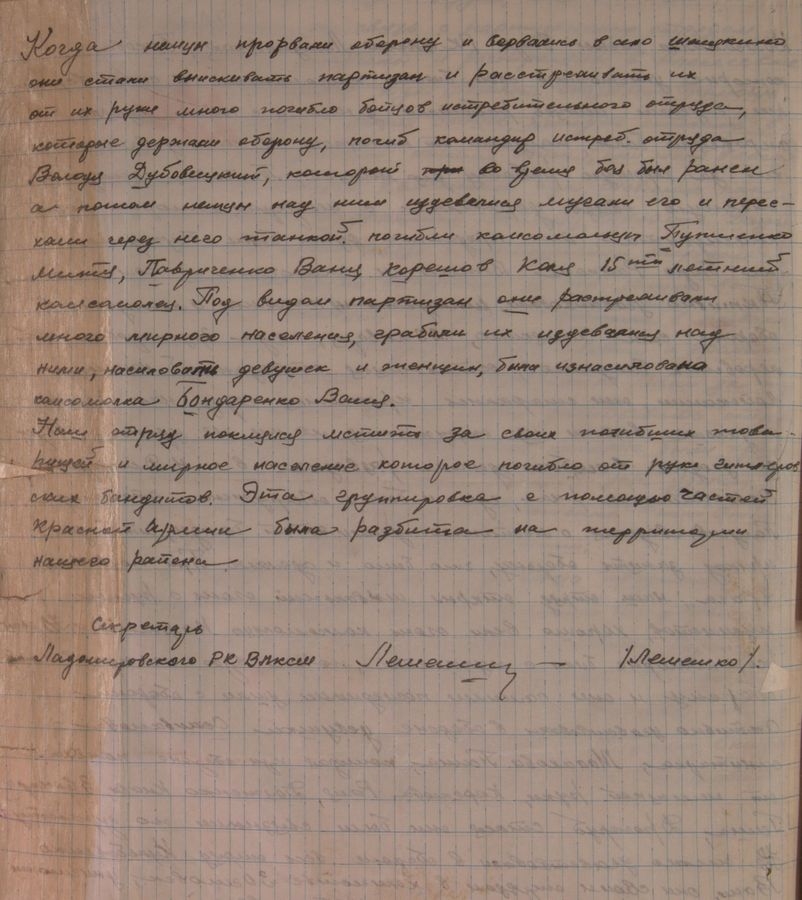 Когда немцы прорвали оборону и ворвались в село
они стали выискивать партизан и расстреливать их
от их руки много погибло бойцов истребительного отряда,
которые держали оборону, погиб командир истреб. отряда
Володя Дубовецкий, который во время боя был ранен
а потом немцы над ним издевались мучали его и перее-
хали через него танкой. погибли комсомольцы
Митя, Лавриченко Ваня Хорешов Коля 15ти летний
комсомолец. Под видом партизан они растреливали
много мирного населения, грабили их издевались над
ними, насиловать девушек и женщин, была изнасилована
комсомолка Бондаренко Валя.
Наш отряд поклялся мстить за своих погибших това-
рищей и мирное население которое погибло от руки гитлеров
ских бандитов. Эта группировка с помощью частей
Красной Армии была разбита на территории
нашего района.
Секретарь
Ладомировского РК ВЛКСМ Лемешко — /Лемешко/.